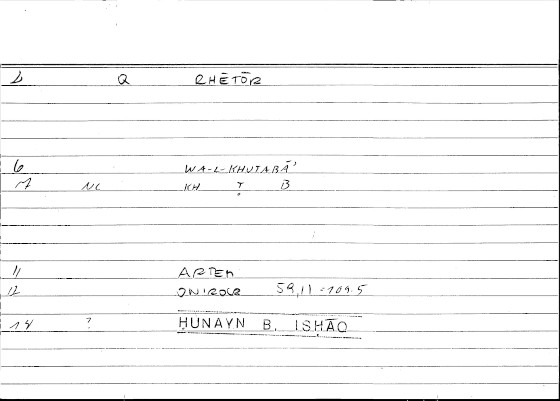 1 Q RHĒTŌR
6 WA-L-KHUTABĀ'
17 NC KH Ṭ B
11 ARTEM
12 ONIROCR 59,11 = 109.5
14 ? ḤUNAYN B. ISḤĀQ